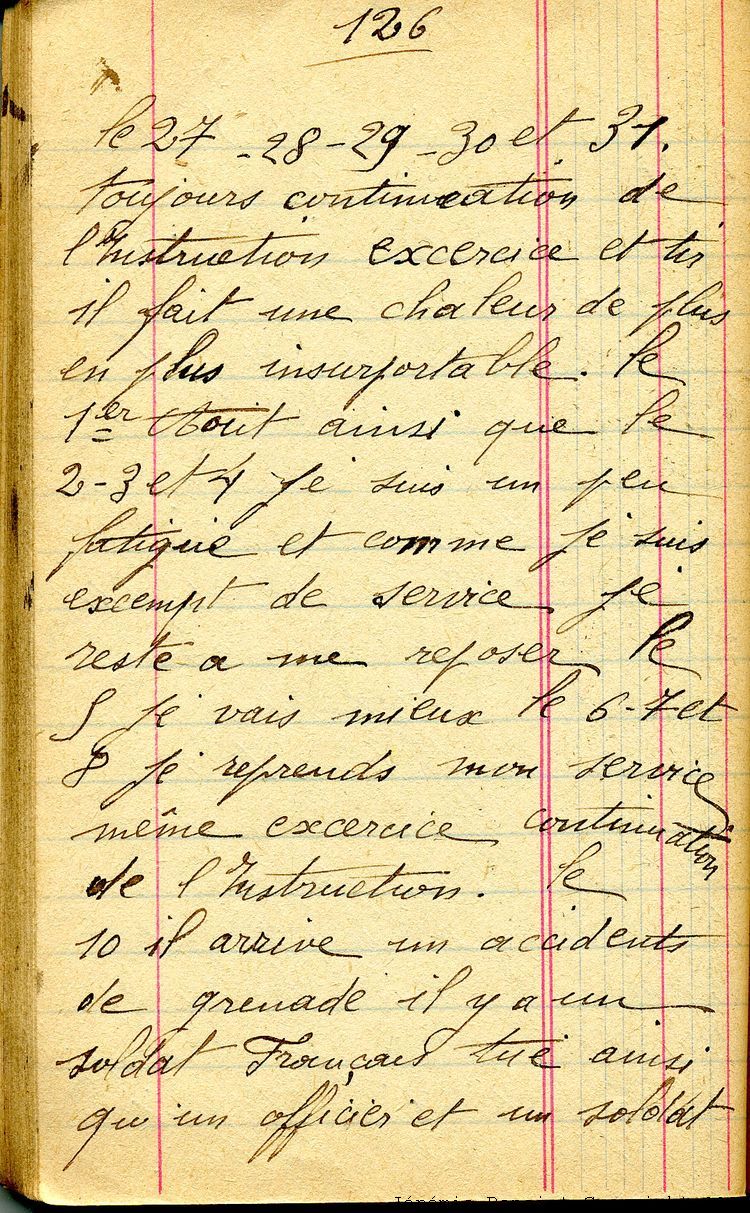 126
le 27 - 28 - 29 - 30 et 31.
toujours continueation de
l'Instruction excercice et tir
il fait une chaleur de plus
en plus insurportable. le
1er Aout ainsi que le
2-3 et 4 je suis un peu
fatigué et comme je suis
excempt de service je
reste a me reposer le
5 je vais mieux le 6-7 et
8 je reprends mon service
même excercice continuation
de l'Instruction. le
10 il arrive un accidents
de grenade il y a un
soldat Français tué ainsi
qu'un officier et un soldat